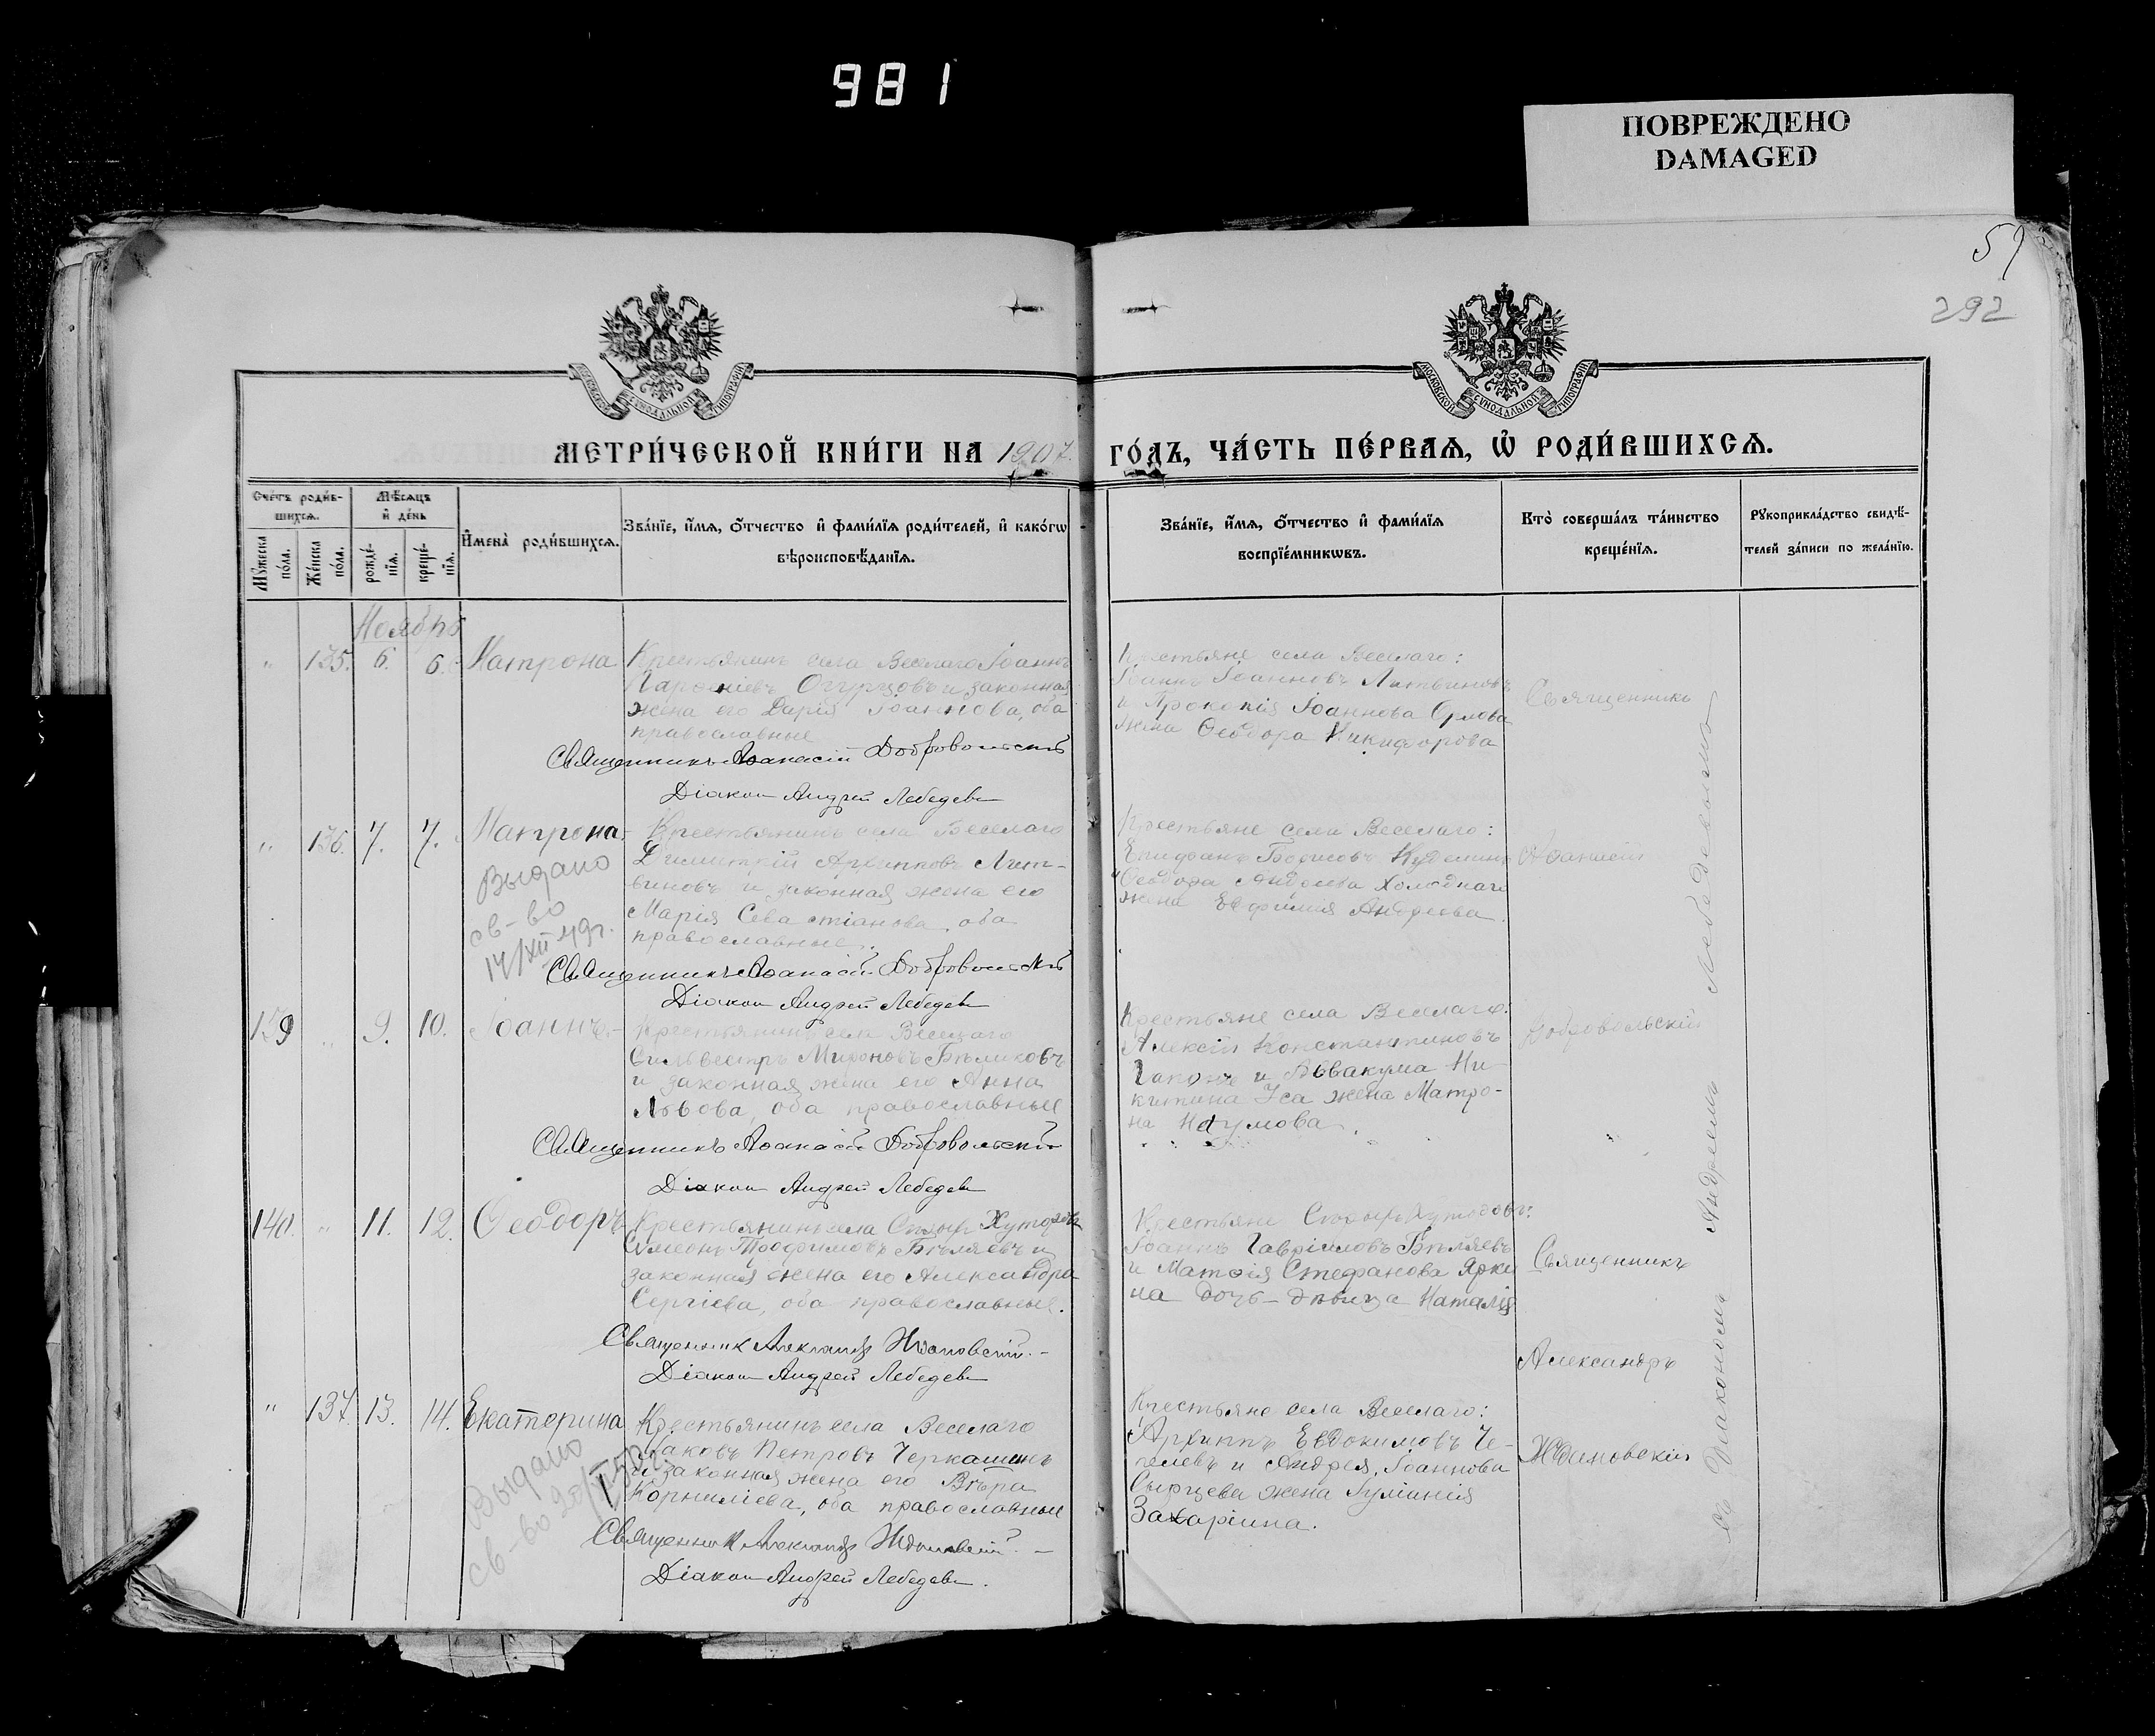 981
ПОВРЕЖДЕНО
DAMAGED
59
292
МОСКОВСКОЙ СѴНОДАЛЬНОЙ ТИПОГРАФІИ
МОСКОВСКОЙ СѴНОДАЛЬНОЙ ТИПОГРАФІИ
МЕТРИ́ЧЕСКОЙ КНИ́ГИ НА 1907. ГО́ДЪ, ЧА́СТЬ ПЕ́РВАѦ, Ѡ҆ РОДИ́ВШИХСѦ.
Сче́тъ роди́в-
шихсѧ.
Мѣ́сѧцъ
и҆ де́нь
Мꙋ́жеска
по́ла.
Же́нска
по́ла.
рожде́-
нїѧ.
креще́-
нїѧ.
И҆мена̀ роди́вшихсѧ.
Зва́нїе, и҆́мѧ, ѻ҆́тчество и҆ фами́лїѧ роди́телей, и҆ како́гѡ
вѣроисповѣ́данїѧ.
Зва́нїе, и҆́мѧ, ѻ҆́тчество и҆ фами́лїѧ
воспрїе́мникѡвъ.
Кто̀ соверша́лъ та́инство
креще́нїѧ.
Рꙋкоприкла́дство свидѣ́-
телей за́писи по жела́нїю.
Ноябрь
" 135. 6. 6. Матрона
Крестьянинъ села Веселаго Іоаннъ
Огурцовъ и законная
жена его Дарія Іоаннова, оба
православные
Священникъ Аѳанасій Добровольскій
Діакон Андрей Лебедев
Крестьяне села Веселаго:
Іоаннъ Іоанновъ Литвиновъ
и Прокопія Іоаннова Орлова
жена Ѳеодора Никифорова
Священникъ
" 136. 7. 7. Матрона
Выдано
св-во
14/XII 49г.
Крестьянинъ села Веселаго
Димитрій Архиповъ Лит-
виновъ и законная жена его
Марія Севастіанова, оба
православные.
Священникъ Аѳанасій Добровольскій
Діакон Андрей Лебедев
Крестьяне села Веселаго:
Епифанъ Борисовъ
Ѳеодора Андреева Холоднаго
жена Евфимія Андреева.
Аѳанасій
139 " 9. 10. Іоаннъ
Крестьянинъ села Веселаго
Сильвестръ Мироновъ Бѣликовъ
и законная жена его Анна
Львова, оба православные
Священникъ Аѳанасій Добровольскій
Діакон Андрей Лебедев
Крестьяне села Веселаго:
Алексій Константиновъ
и Аввакума Ни-
китина Уса жена Матро-
на Наумова.
Добровольскій
140. " 11. 12. Ѳеодоръ
Крестьянинъ села Хуторовъ
Симеонъ Трофимовъ Бѣляевъ и
законная жена его Александра
Сергіева, оба православные.
Священник Александр Ждановскій.
Діакон Андрей Лебедев
Крестьяне Хуторовъ:
Іоаннъ Гавріиловъ Бѣляевъ
и Матѳія Стефанова Ярки-
на дочь-дѣвица Наталія
Священникъ
Александръ
" 137. 13. 14. Екатерина
Выдано
св-во
Крестьянинъ села Веселаго
Іаковъ Петровъ Черкашинъ
и законная жена его Вѣра
Корниліева, оба православные
Священник Александр Ждановскій.
Діакон Андрей Лебедев.
Крестьяне села Веселаго:
Архиппъ Евдокимовъ Че-
пелевъ и Андрея Іоаннова
Сырцева жена
Захаріина.
Ждановскій
съ Діакономъ Андреемъ Лебедевымъ